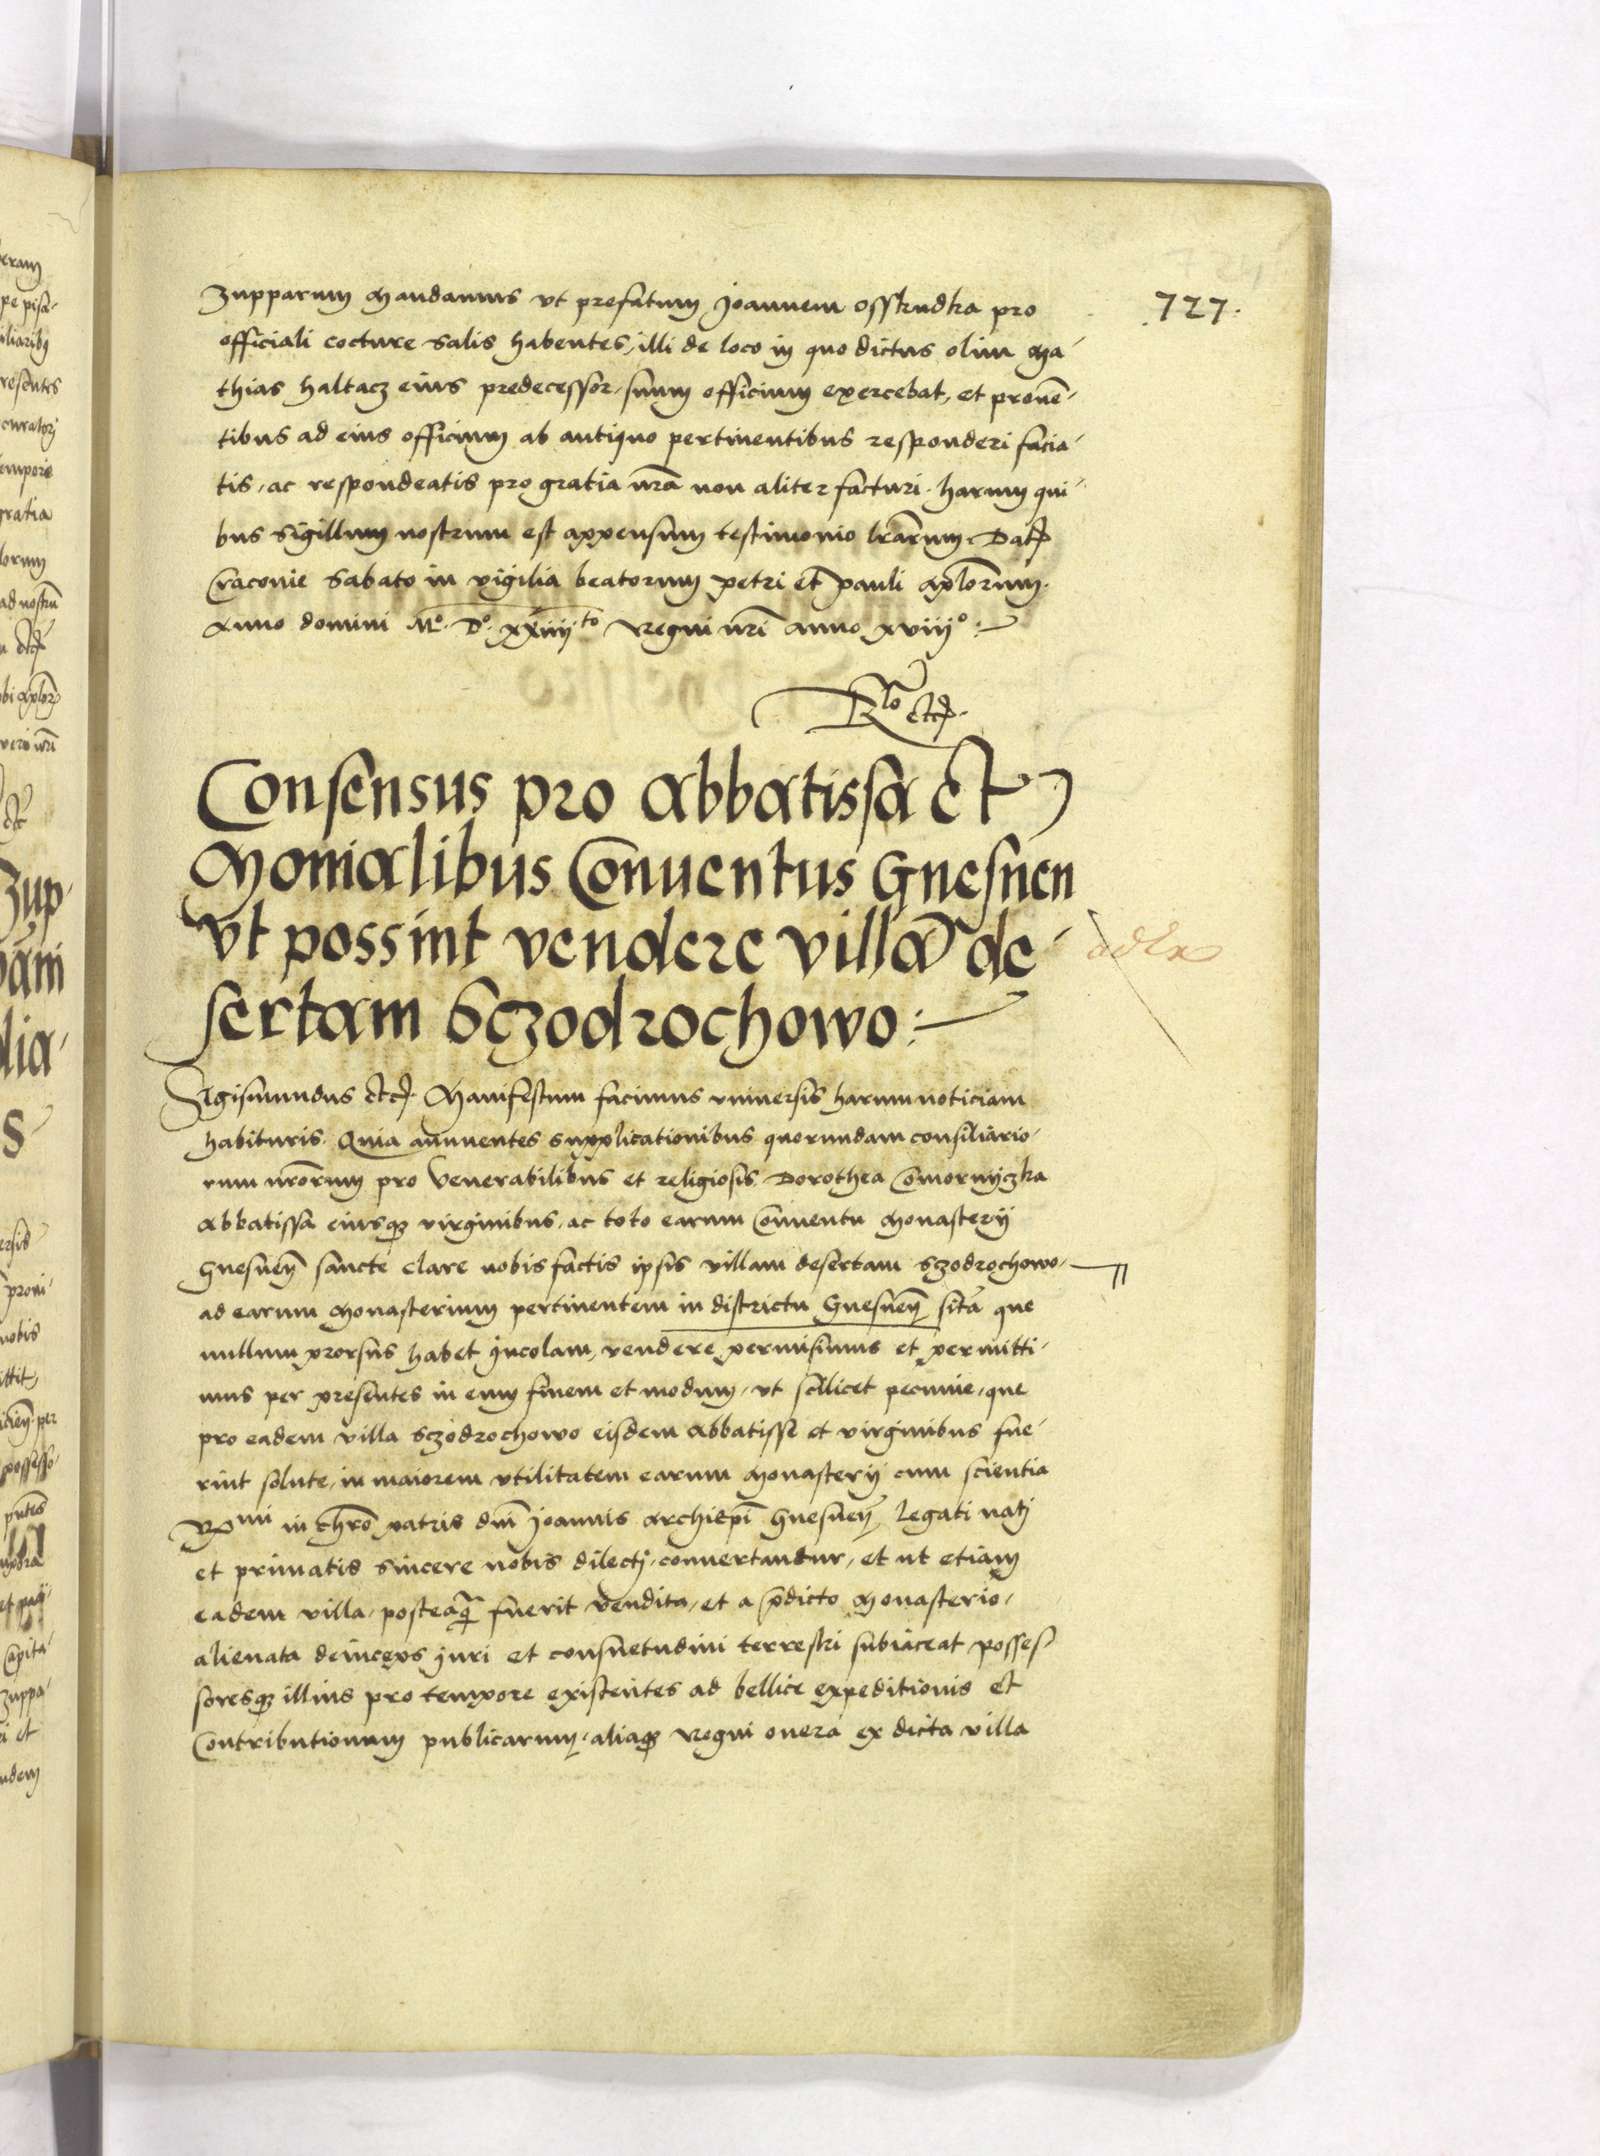 727.
zupparum mandamus vt prefatum Joannem Osstrudka pro
officiali cocture salis habentes, illi de loco in quo dictus olim Ma-
thias haltacz eius predecessor suum officium exercebat, et prouen̄-
tibus ad eius officium ab antiquo pertinentibus responderi facia-
tis, ac respondeatis pro gratia nr̄a non aliter facturi. harum qui-
bus sigillum nostrum est appensum testimonio lr̄arum. Datꝭ
Craconie Sabato in vigilia beatorum petri et pauli apl̄orum.
Anno domini Mº. Dº. xxiiijto Regni nr̄i anno xviijº.
Rlo etcꝭ.
Consensus pro Abbatissa Et
Monialibus Conuentus Gnesnen
vt possint vendere villā de-
sertam Sczodrochowo:
Sigismundus etcꝭ. Manifestum facimus vniuersis harum noticiam
habituris. Quia annuentes supplicationibus quorundam consiliario-
rum nr̄orum pro Venerabilibus et religiosis Dorothea Comornyczka
Abbatissa eiusqꝫ virginibus, ac toto earum Conuentu Monasterij
Gnesnen̄ sancte Clare nobis factis ipsis villam desertam Sczodrochowo
ad earum Monasterium pertinentem in districtu Gnesnen̄ sitā que
nullum prorsus habet Incolam, vendere permisimus et permitti-
mus per presentes in eum finem et modum, vt scilicet pecunie, que
pro eadem villa Sczodrochowo eisdem Abbatisse et virginibus fue-
rint solute, in maiorem vtilitatem earum Monasterij cum scientia
Rmi in chr̄o patris dn̄i Joannis Archiep̄i Gnesnen̄ Legati natj
et primatis sincere nobis dilectj, conuertantur, et ut etiam
eadem villa, posteaq̄ fuerit vendita, et a p̄dicto Monasterio,
alienata deinceps Juri et consuetudini terrestri subiaceat posses-
soresqꝫ illius pro tempore existentes ad bellice expeditionis et
Contributionum publicarum, aliaqꝫ Regni onera ex dicta villa